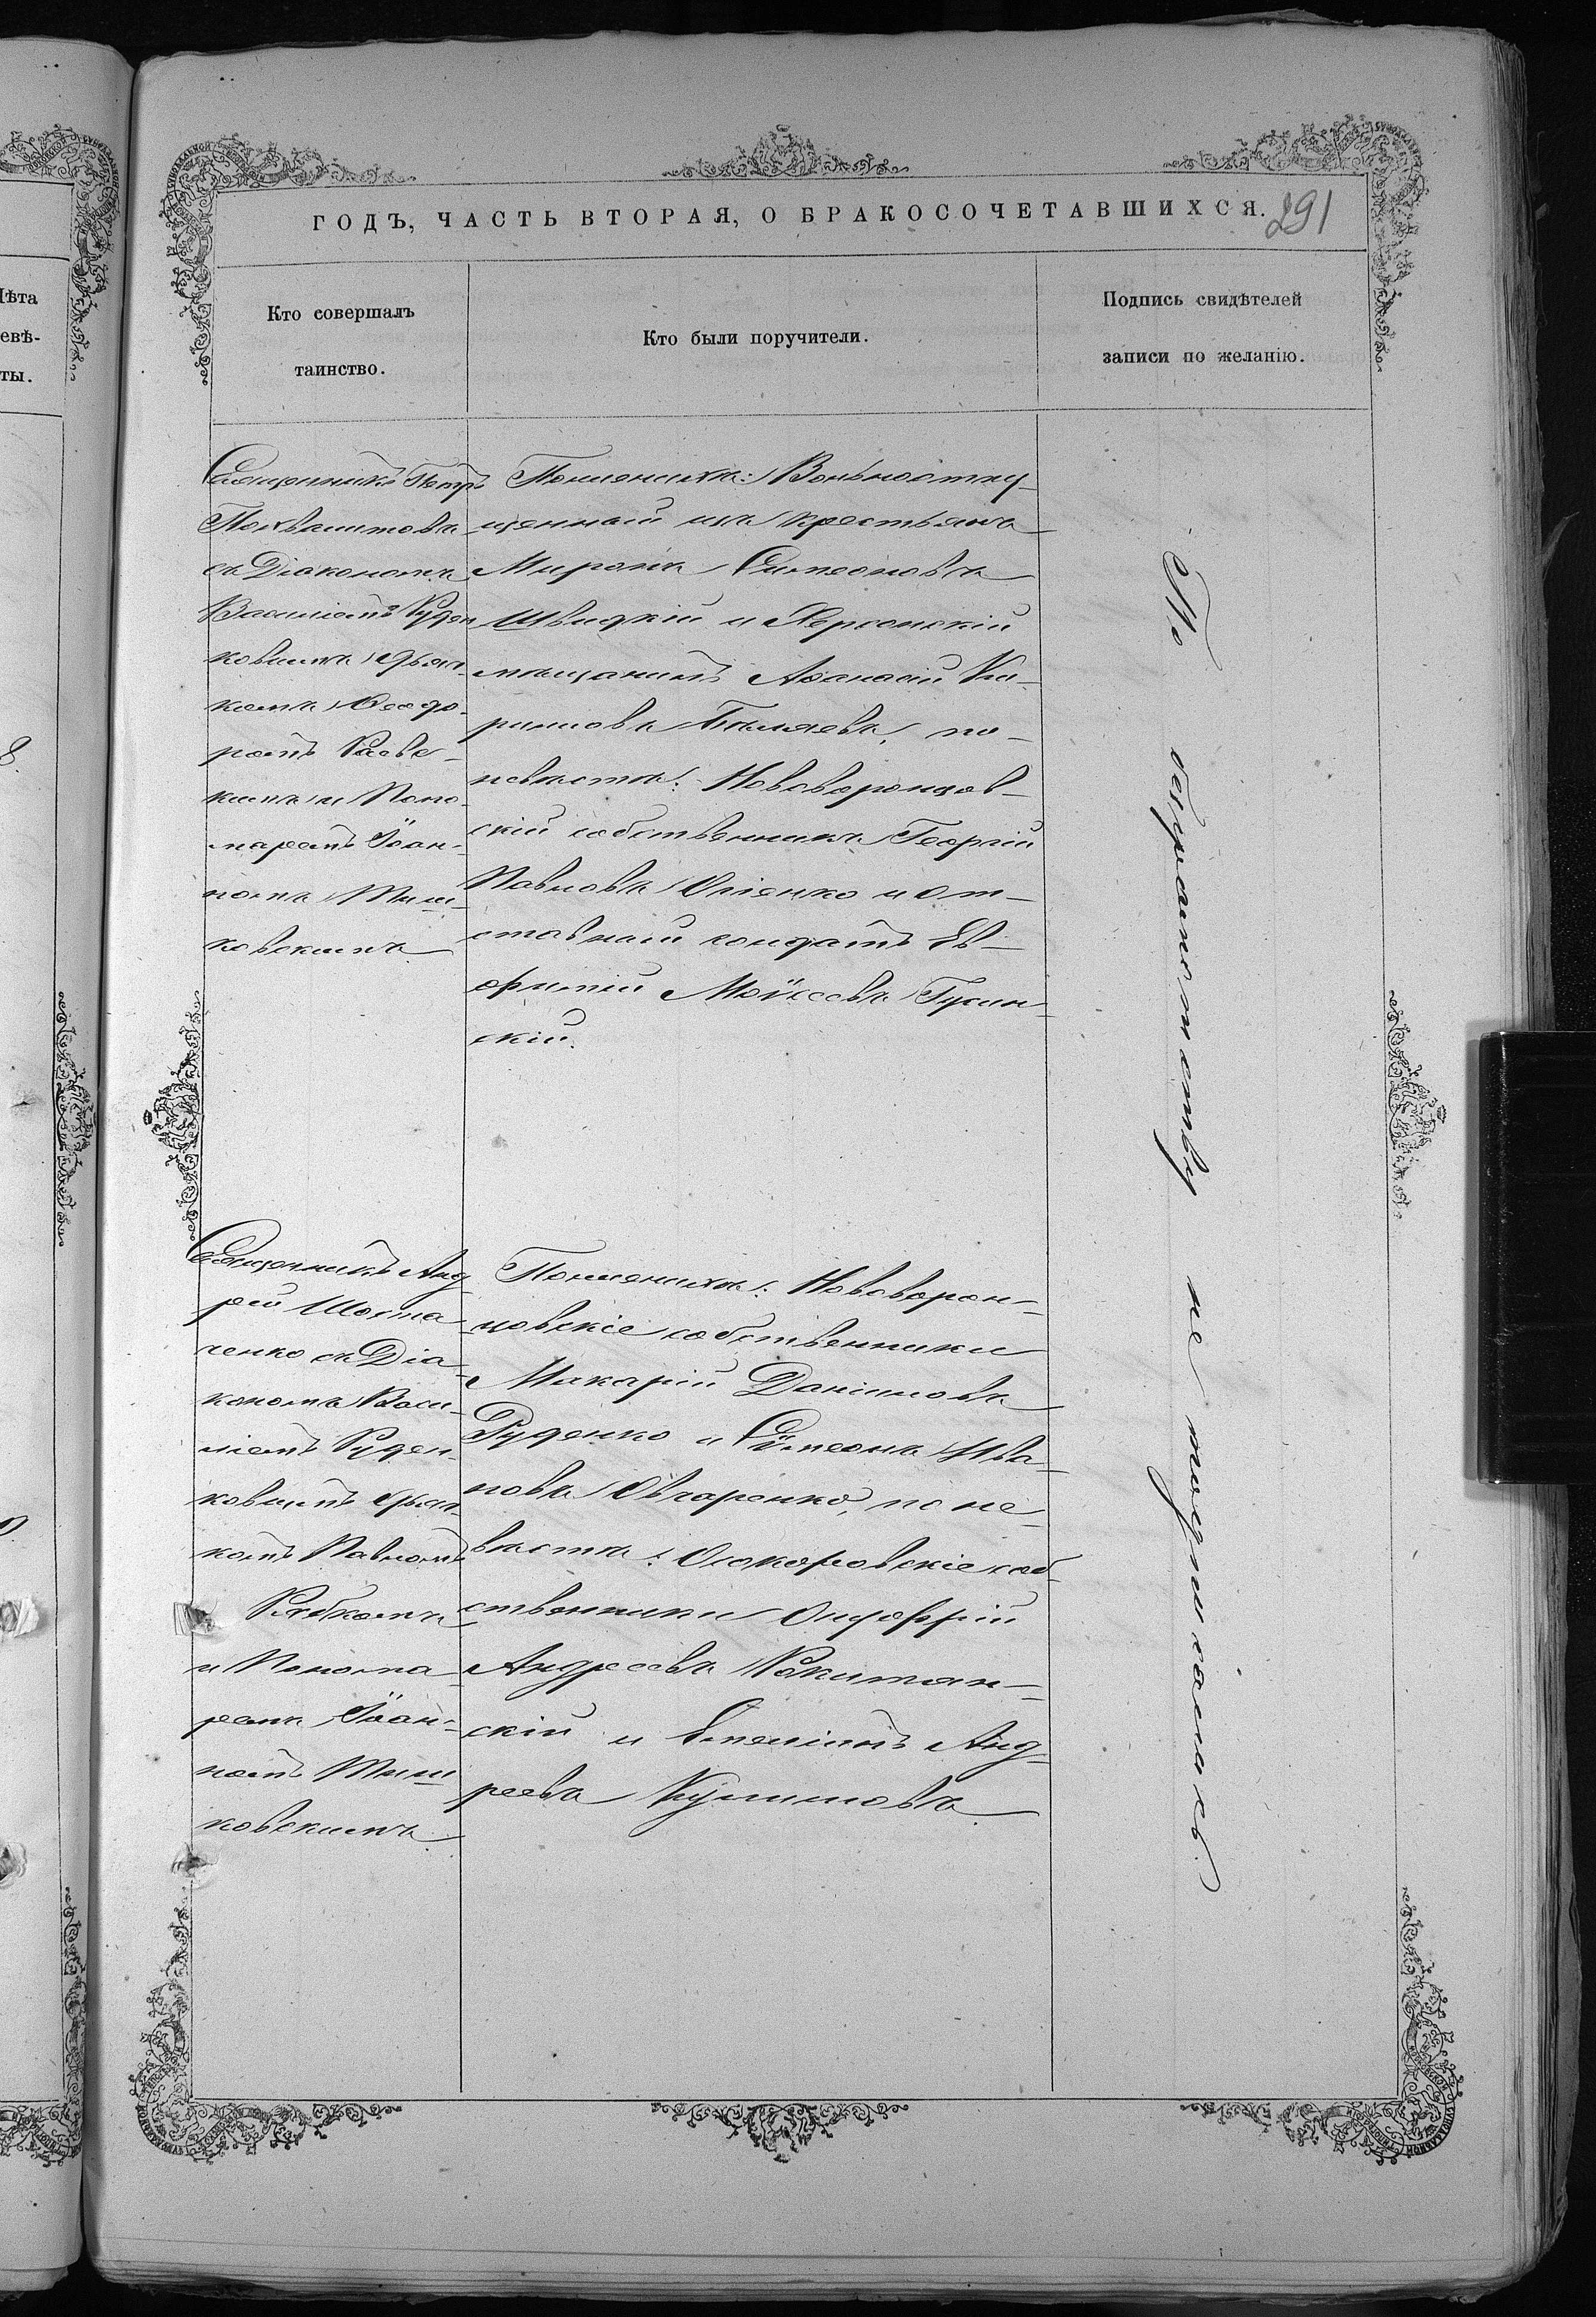 ГОДЪ, ЧАСТЬ ВТОРАЯ, О БРАКОСОЧЕТАВШИХСЯ. 291
Лѣта
невѣ-
ты.
Кто совершалъ
таинство.
Кто были поручители.
Подпись свидѣтелей
записи по желанію.
Священникъ Петръ
съ Діакономъ
Василіемъ Руден
ковымъ, дьяч-
комъ Ѳеодо-
ромъ
кимъ и Поно-
маремъ Іоан-
номъ Тиш-
ковскимъ
По женихѣ: Вольноотпу-
щенный изъ крестьянъ
Миронъ Симеоновъ
Швидкій и Херсонскій
мѣщанинъ Аѳанасій Ки-
риловъ Бѣляевъ, по
невѣстѣ: Нововоронцов-
скій собственникъ Георгій
Павловъ и от-
ставный солдатъ Ев-
фимій Моѵсеевъ Гусин-
скій.
Священникъ Анд
рей Шоста
ченко съ Діа-
кономъ Васи-
ліемъ Руден-
ковымъ, дьяч-
комъ Павломъ
Рябкомъ
и Понома-
ремъ Іоан-
номъ Тиш
ковскимъ.
По женихѣ: Нововорон-
цовскіе собственники
Макарій Даніиловъ
Руденко и Сѵмеонъ Ива-
новъ Овчаренко, по не-
вѣстѣ: Осокоровскіе соб-
ственники Онуфрій
Андреевъ Рокитян-
скій и Емеліанъ Анд-
реевъ Куликовъ
По безграмотству не подписались.
8.
0.